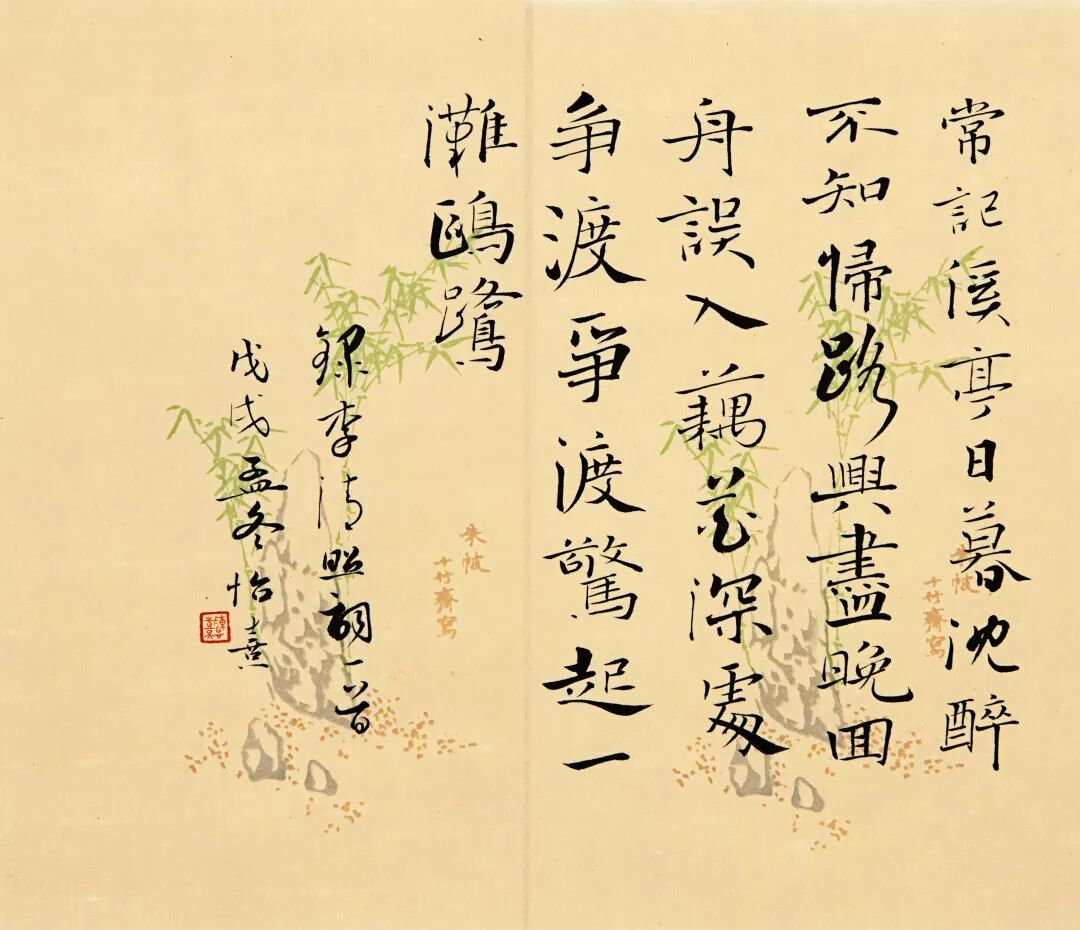 常記溪亭日暮沈醉
不知歸路興盡晚回
舟誤入藕花深處
爭渡爭渡驚起一
灘鷗鷺
錄李清照詞一首
戊戌孟冬怡熹
朱帔
十竹齋寫
朱帔
十竹齋寫